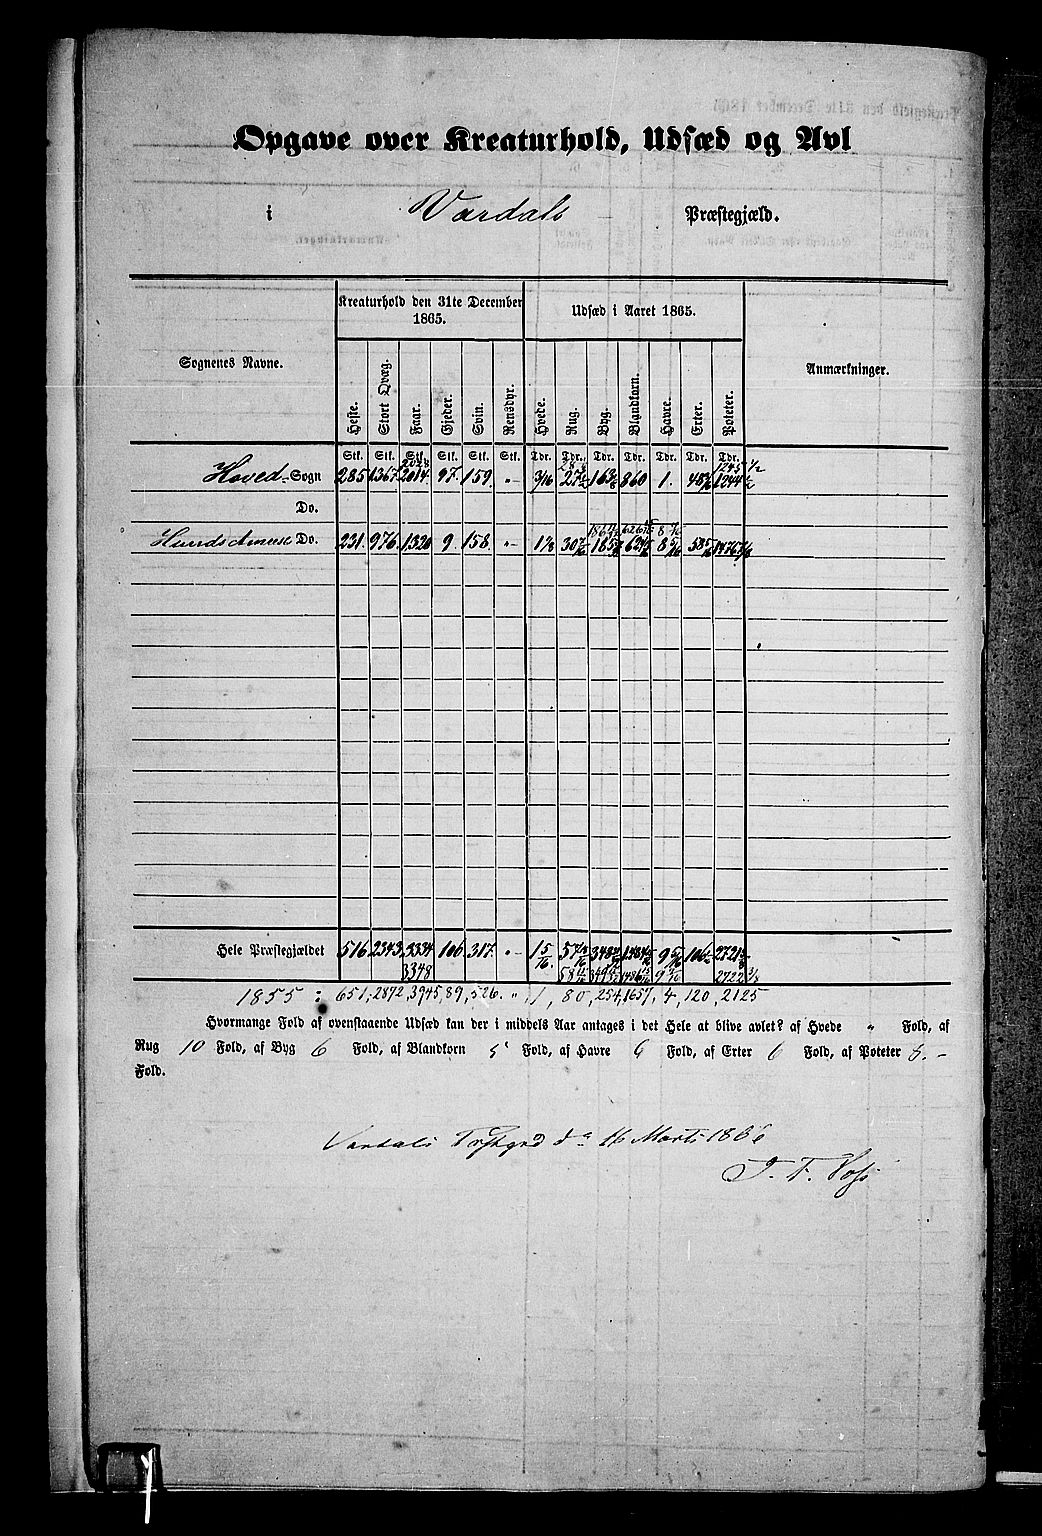 Opgave over Kreaturhold, Udsæd og Avl
i Vardals Præstegjæld.
Sognenes Navne. Kreaturhold den 31te December 1865. Udsæd i Aaret 1865. Anmærkninger.
Heste. Stort Qvæg. Faar. Gjeder. Svin. Rensdyr. Hvede. Rug. Byg. Blandkorn. Havre. Erter. Poteter.
Stk. Stk. Stk. Stk. Stk. Stk. Tdr. Tdr. Tdr. Tdr. Tdr. Tdr. Tdr.
2028 1245 1/2
Hoved- Sogn 285 1367 2014 97 159 " 3/16 27 1/2 163 860 1 48 1244 1/2
Do.
Do. 231 976 1320 9 158 " 1 1/8 30 185 624 8 5/16 58 1476 7/8
Hele Præstegjældet 516 2343 3334 106 317 " 1 5/16 57 348 1484 9 5/16 106 2721
3348 58 349 1486 9 2722 3/8
1855 : 651, 2872, 3945, 89, 526. ", 1, 80, 254, 1657, 4, 120, 2125
Hvormange Fold af ovenstaaende Udsæd kan der i middels Aar antages i det Hele at blive avlet? af Hvede " Fold, af
Rug 10 Fold, af Byg 6 Fold, af Blandkorn 5 Fold, af Havre 6 Fold, af Erter 6 Fold, af Poteter 5. -
Fold.
Vardals 16 Marts 1866
J. F. Voss